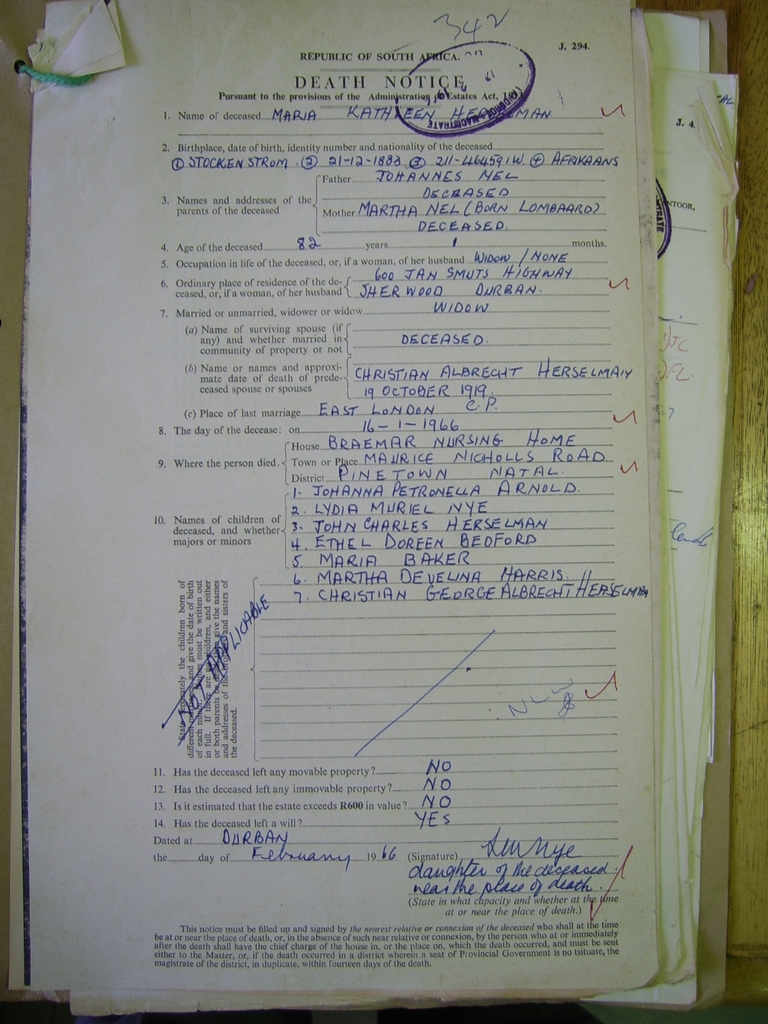 342
J. 294.
REPUBLIC OF SOUTH AFRICA.
DEATH NOTICE
Pursuant to the provisions of the Administration Estates Act,
MAGISTRATE
1. Name of deceased MARIA KATHLEEN HERSELMAN
2. Birthplace, date of birth, identity number and nationality of the deceased
① STOCKENSTROM ② 21-12-1883 ③ 211-464591W ④ AFRIKAANS
3. Names and addresses of the parents of the deceased
Father JOHANNES NEL
DECEASED
Mother MARTHA NEL (BORN LOMBAARD)
DECEASED.
4. Age of the deceased 82 years 1 months.
5. Occupation in life of the deceased, or, if a woman, of her husband WIDOW / NONE
6. Ordinary place of residence of the deceased, or, if a woman, of her husband
600 JAN SMUTS HIGHWAY
SHERWOOD DURBAN.
7. Married or unmarried, widower or widow WIDOW
(a) Name of surviving spouse (if any) and whether married in community of property or not
DECEASED.
(b) Name or names and approximate date of death of predeceased spouse or spouses
CHRISTIAN ALBRECHT HERSELMAN
19 OCTOBER 1919.
(c) Place of last marriage EAST LONDON C.P.
8. The day of the decease: on 16-1-1966
9. Where the person died.
House BRAEMAR NURSING HOME
Town or Place MAURICE NICHOLLS ROAD
District PINETOWN NATAL.
10. Names of children of deceased, and whether majors or minors
1. JOHANNA PETRONELLA ARNOLD.
2. LYDIA MURIEL NYE
3. JOHN CHARLES HERSELMAN
4. ETHEL DOREEN BEDFORD
5. MARIA BAKER
6. MARTHA DEVELINA HARRIS.
7. CHRISTIAN GEORGE ALBRECHT HERSELMAN
NOT APPLICABLE
11. Has the deceased left any movable property? NO
12. Has the deceased left any immovable property? NO
13. Is it estimated that the estate exceeds R600 in value? NO
14. Has the deceased left a will? YES
Dated at DURBAN
the day of February 1966 (Signature) LM Nye
daughter of the deceased
near the place of death.
(State in what capacity and whether at the time
at or near the place of death.)
This notice must be filled up and signed by the nearest relative or connexion of the deceased who shall at the time
be at or near the place of death, or, in the absence of such near relative or connexion, by the person who at or immediately
after the death shall have the chief charge of the house in, or the place on, which the death occurred, and must be sent
either to the Master, or, if the death occurred in a district wherein a seat of Provincial Government is no tsituate, the
magistrate of the district, in duplicate, within fourteen days of the death.
J. 4.